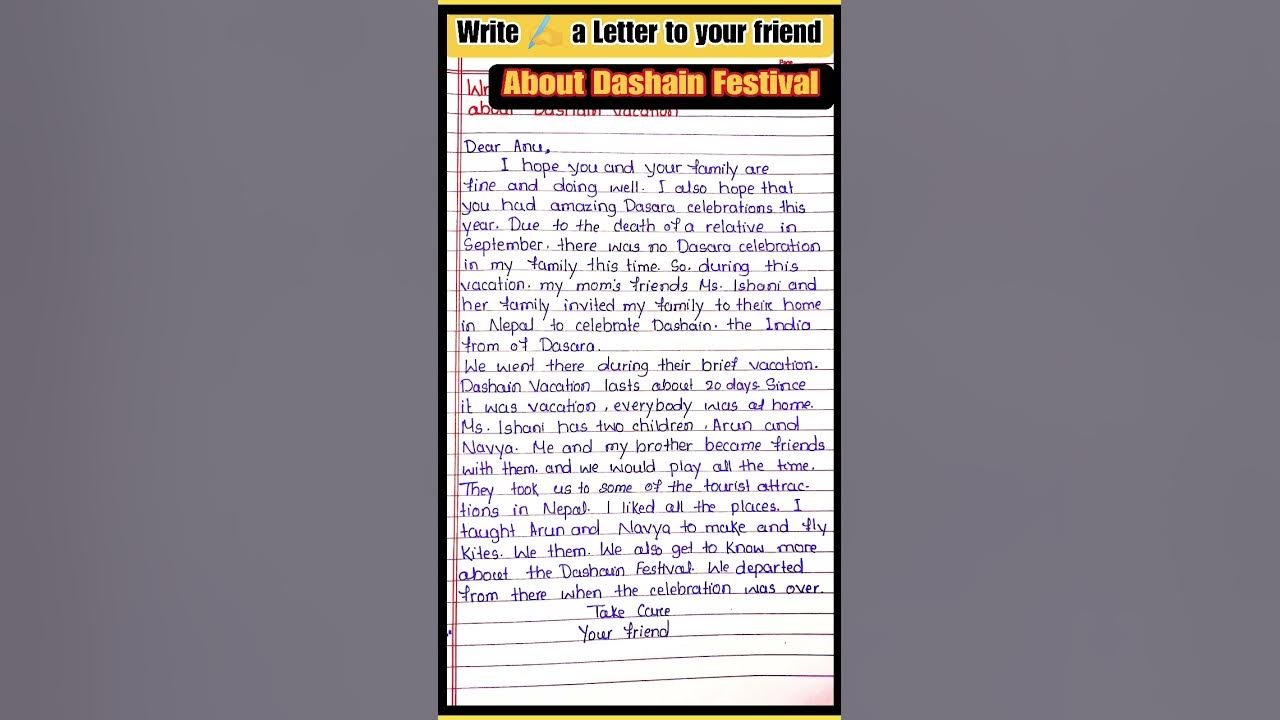 Write ✍ a Letter to your friend
Page
About Dashain Festival
Wr
about Dashain vacation
Dear Anu,
I hope you and your family are
fine and doing well. I also hope that
you had amazing Dasara celebrations this
year. Due to the death of a relative in
September, there was no Dasara celebration
in my family this time. So, during this
vacation, my mom's friends Ms. Ishani and
her family invited my family to their home
in Nepal to celebrate Dashain. the India
from of Dasara.
We went there during their brief vacation.
Dashain Vacation lasts about 20 days. Since
it was vacation, everybody was at home.
Ms. Ishani has two children, Arun and
Navya. Me and my brother became friends
with them. and we would play all the time.
They took us to some of the tourist attrac-
tions in Nepal. I liked all the places. I
taught Arun and Navya to make and fly
kites. We them. We also get to know more
about the Dashain Festival. We departed
from there when the celebration was over.
Take Care
Your friend